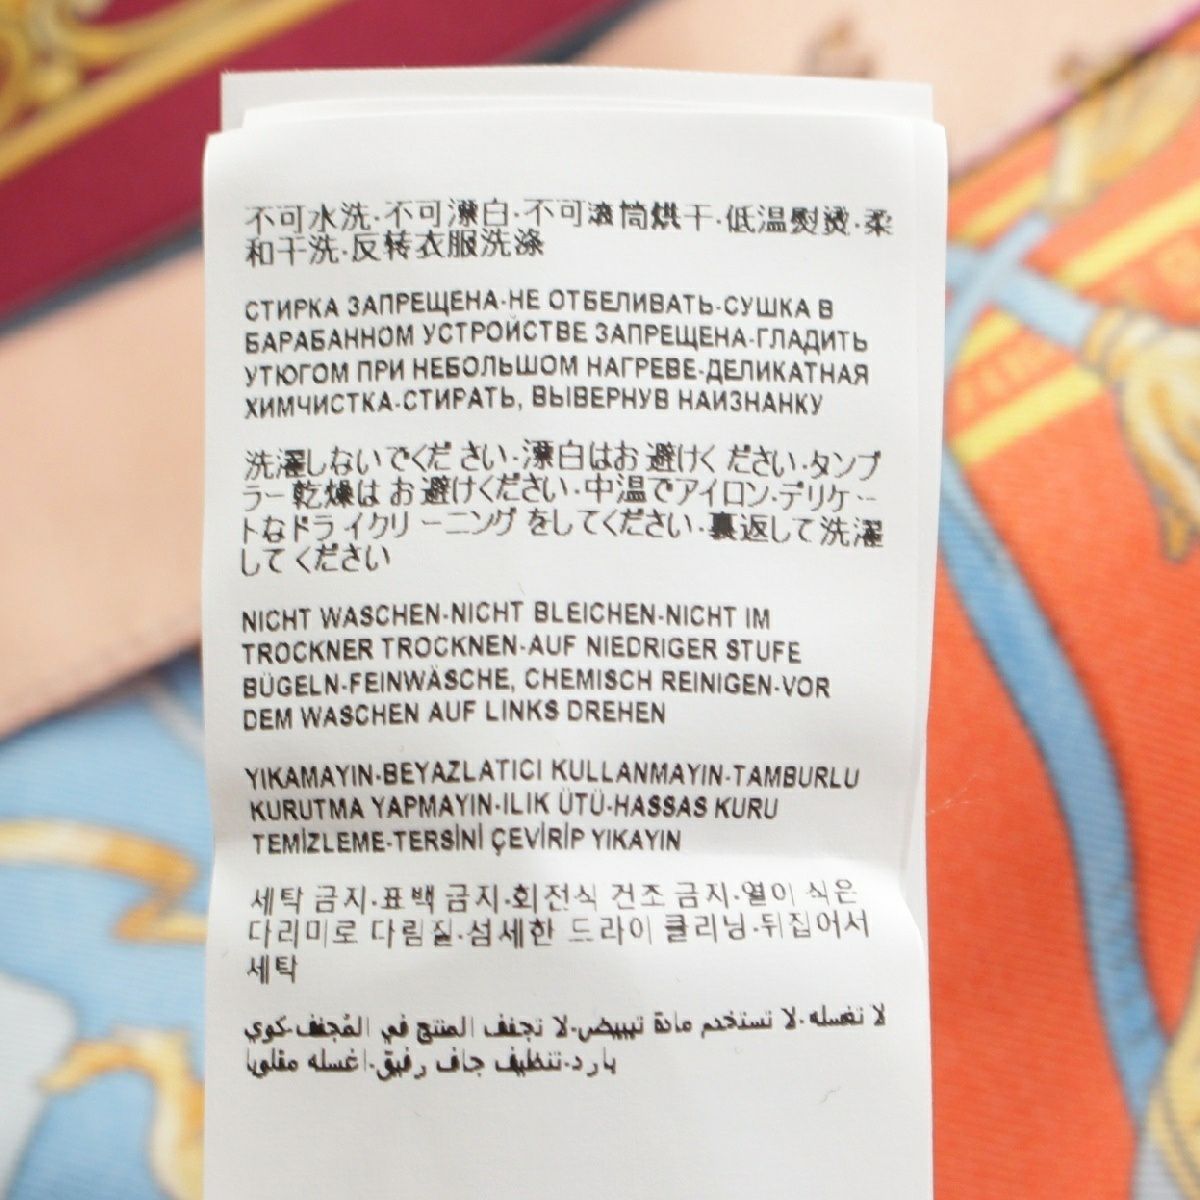 不可水洗-不可漂白-不可滚筒烘干-低温熨烫-柔
和干洗-反转衣服洗涤
СТИРКА ЗАПРЕЩЕНА-НЕ ОТБЕЛИВАТЬ-СУШКА В
БАРАБАННОМ УСТРОЙСТВЕ ЗАПРЕЩЕНА-ГЛАДИТЬ
УТЮГОМ ПРИ НЕБОЛЬШОМ НАГРЕВЕ-ДЕЛИКАТНАЯ
ХИМЧИСТКА-СТИРАТЬ, ВЫВЕРНУВ НАИЗНАНКУ
洗濯しないでください-漂白はお避けください-タンブ
ラー乾燥はお避けください-中温でアイロン-デリケー
トなドライクリーニングをしてください-裏返して洗濯
してください
NICHT WASCHEN-NICHT BLEICHEN-NICHT IM
TROCKNER TROCKNEN-AUF NIEDRIGER STUFE
BÜGELN-FEINWÄSCHE, CHEMISCH REINIGEN-VOR
DEM WASCHEN AUF LINKS DREHEN
YIKAMAYIN-BEYAZLATICI KULLANMAYIN-TAMBURLU
KURUTMA YAPMAYIN-ILIK ÜTÜ-HASSAS KURU
TEMİZLEME-TERSİNİ ÇEVİRİP YIKAYIN
세탁 금지-표백 금지-회전식 건조 금지-열이 식은
다리미로 다림질-섬세한 드라이 클리닝-뒤집어서
세탁
لا تغسله-لا تستخدم مادة تبييض-لا تجفف المنتج في المُجفف-كوي
بارد-تنظيف جاف رفيق-اغسله مقلوبا